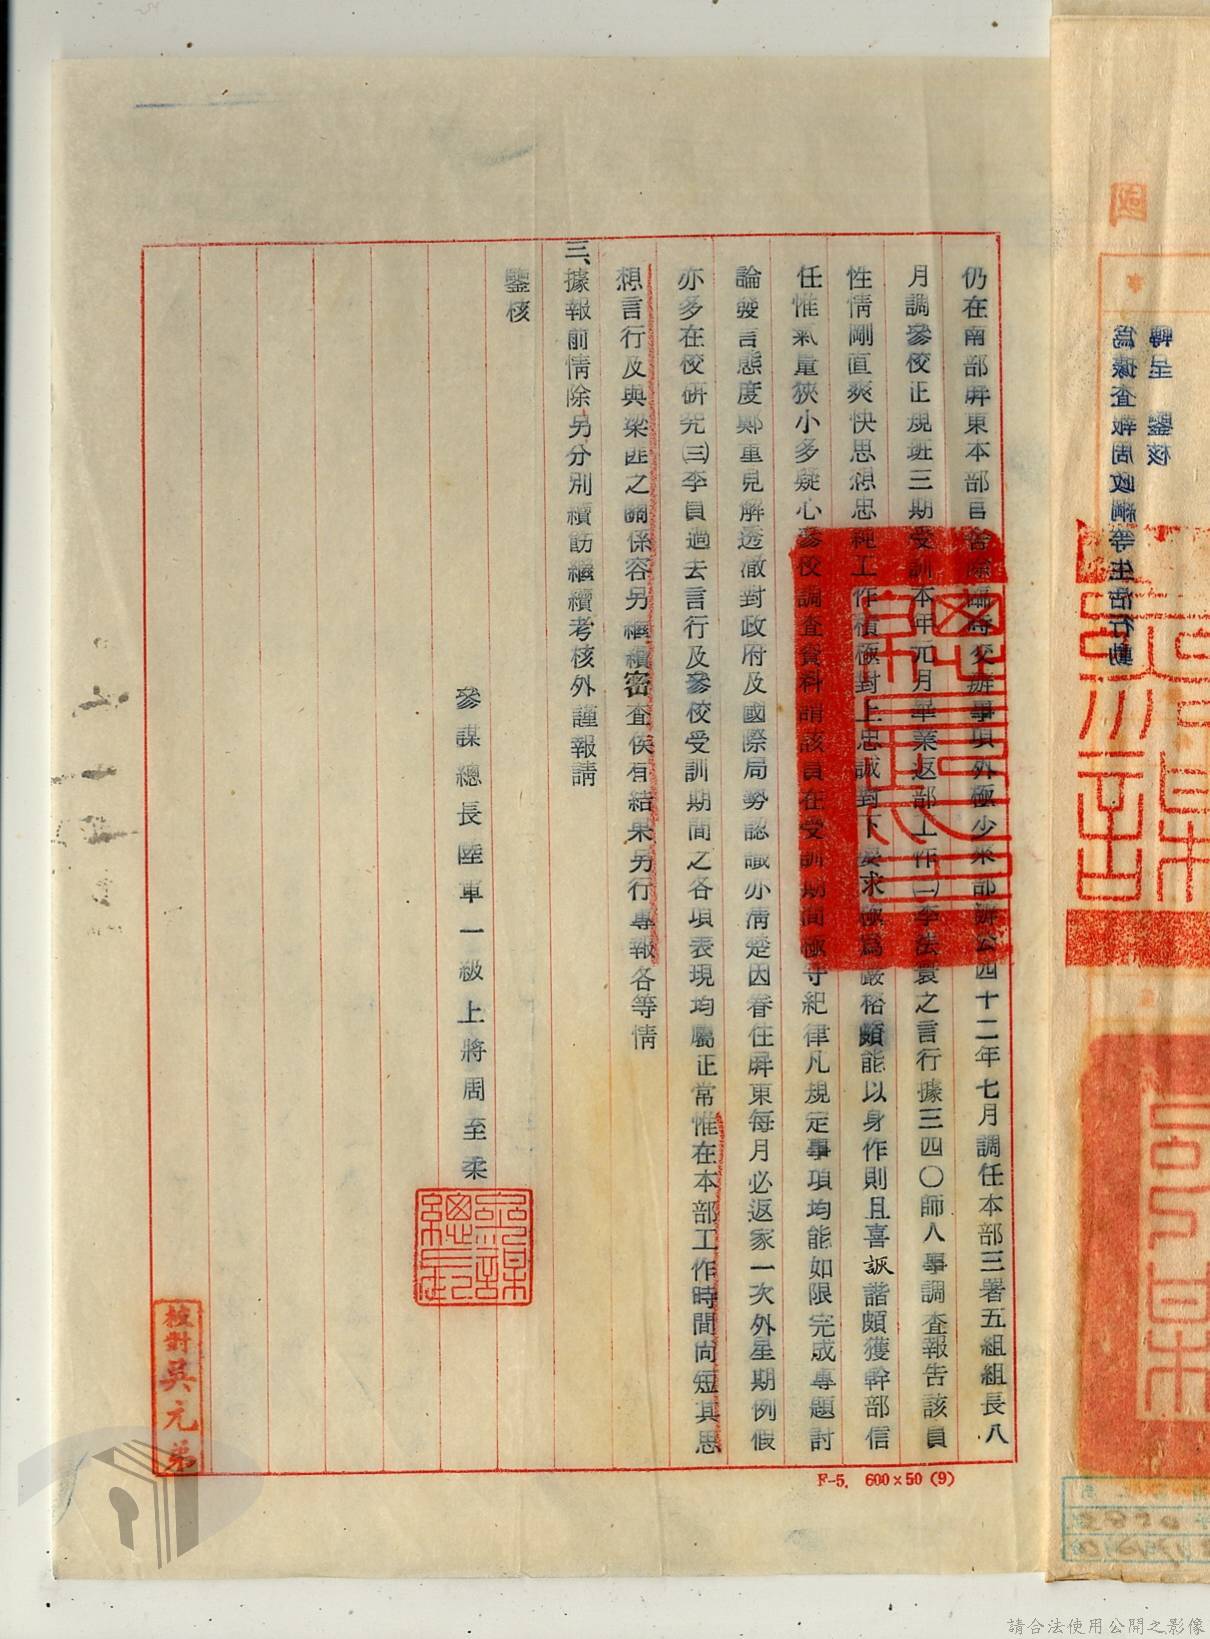 仍在南部屏東本部官舍除臨時交辦事項外極少來部辦公四十二年七月調任本部三署五組組長八
月調參校正規班三期受訓本年元月畢業返部工作㈡李法寰之言行據三四〇師人事調查報告該員
性情剛直爽快思想忠純工作積極對上忠誠對下要求極為嚴格頗能以身作則且喜詼諧頗獲幹部信
任惟氣量狹小多疑心參校調查資料謂該員在受訓期間極守紀律凡規定事項均能如限完成專題討
論發言態度鄭重見解透澈對政府及國際局勢認識亦清楚因眷住屏東每月必返家一次外星期例假
亦多在校研究㈢李員過去言行及參校受訓期間之各項表現均屬正常惟在本部工作時間尚短其思
想言行及與梁匪之關係容另繼續密查俟有結果另行專報各等情
三、據報前情除另分別續飭繼續考核外謹報請
鑒核
參謀總長陸軍一級上將周至柔
參謀總長
校對吳元弟
F-5. 600×50 (9)
轉呈 鑒核
為據查報周政綱等生活行動
國
請合法使用公開之影像